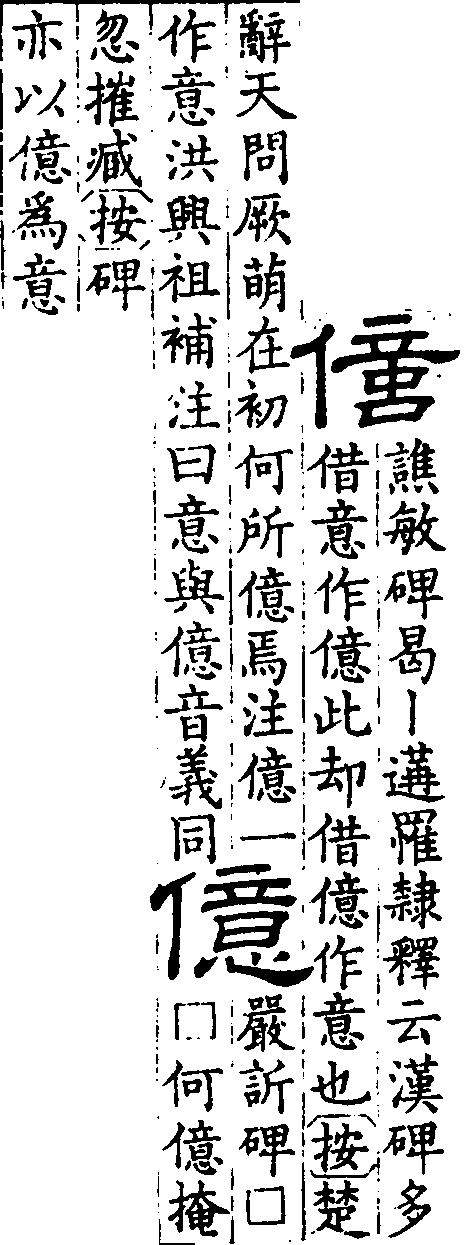 譙敏碑曷丨遘罹隸釋云漢碑多
借意作億此却借億作意也按楚
辭天問厥萌在初何所億焉注億一
作意洪興祖補注曰意與億音義同
億
嚴訢碑□
□何億掩
忽摧臧按碑
亦以億爲意